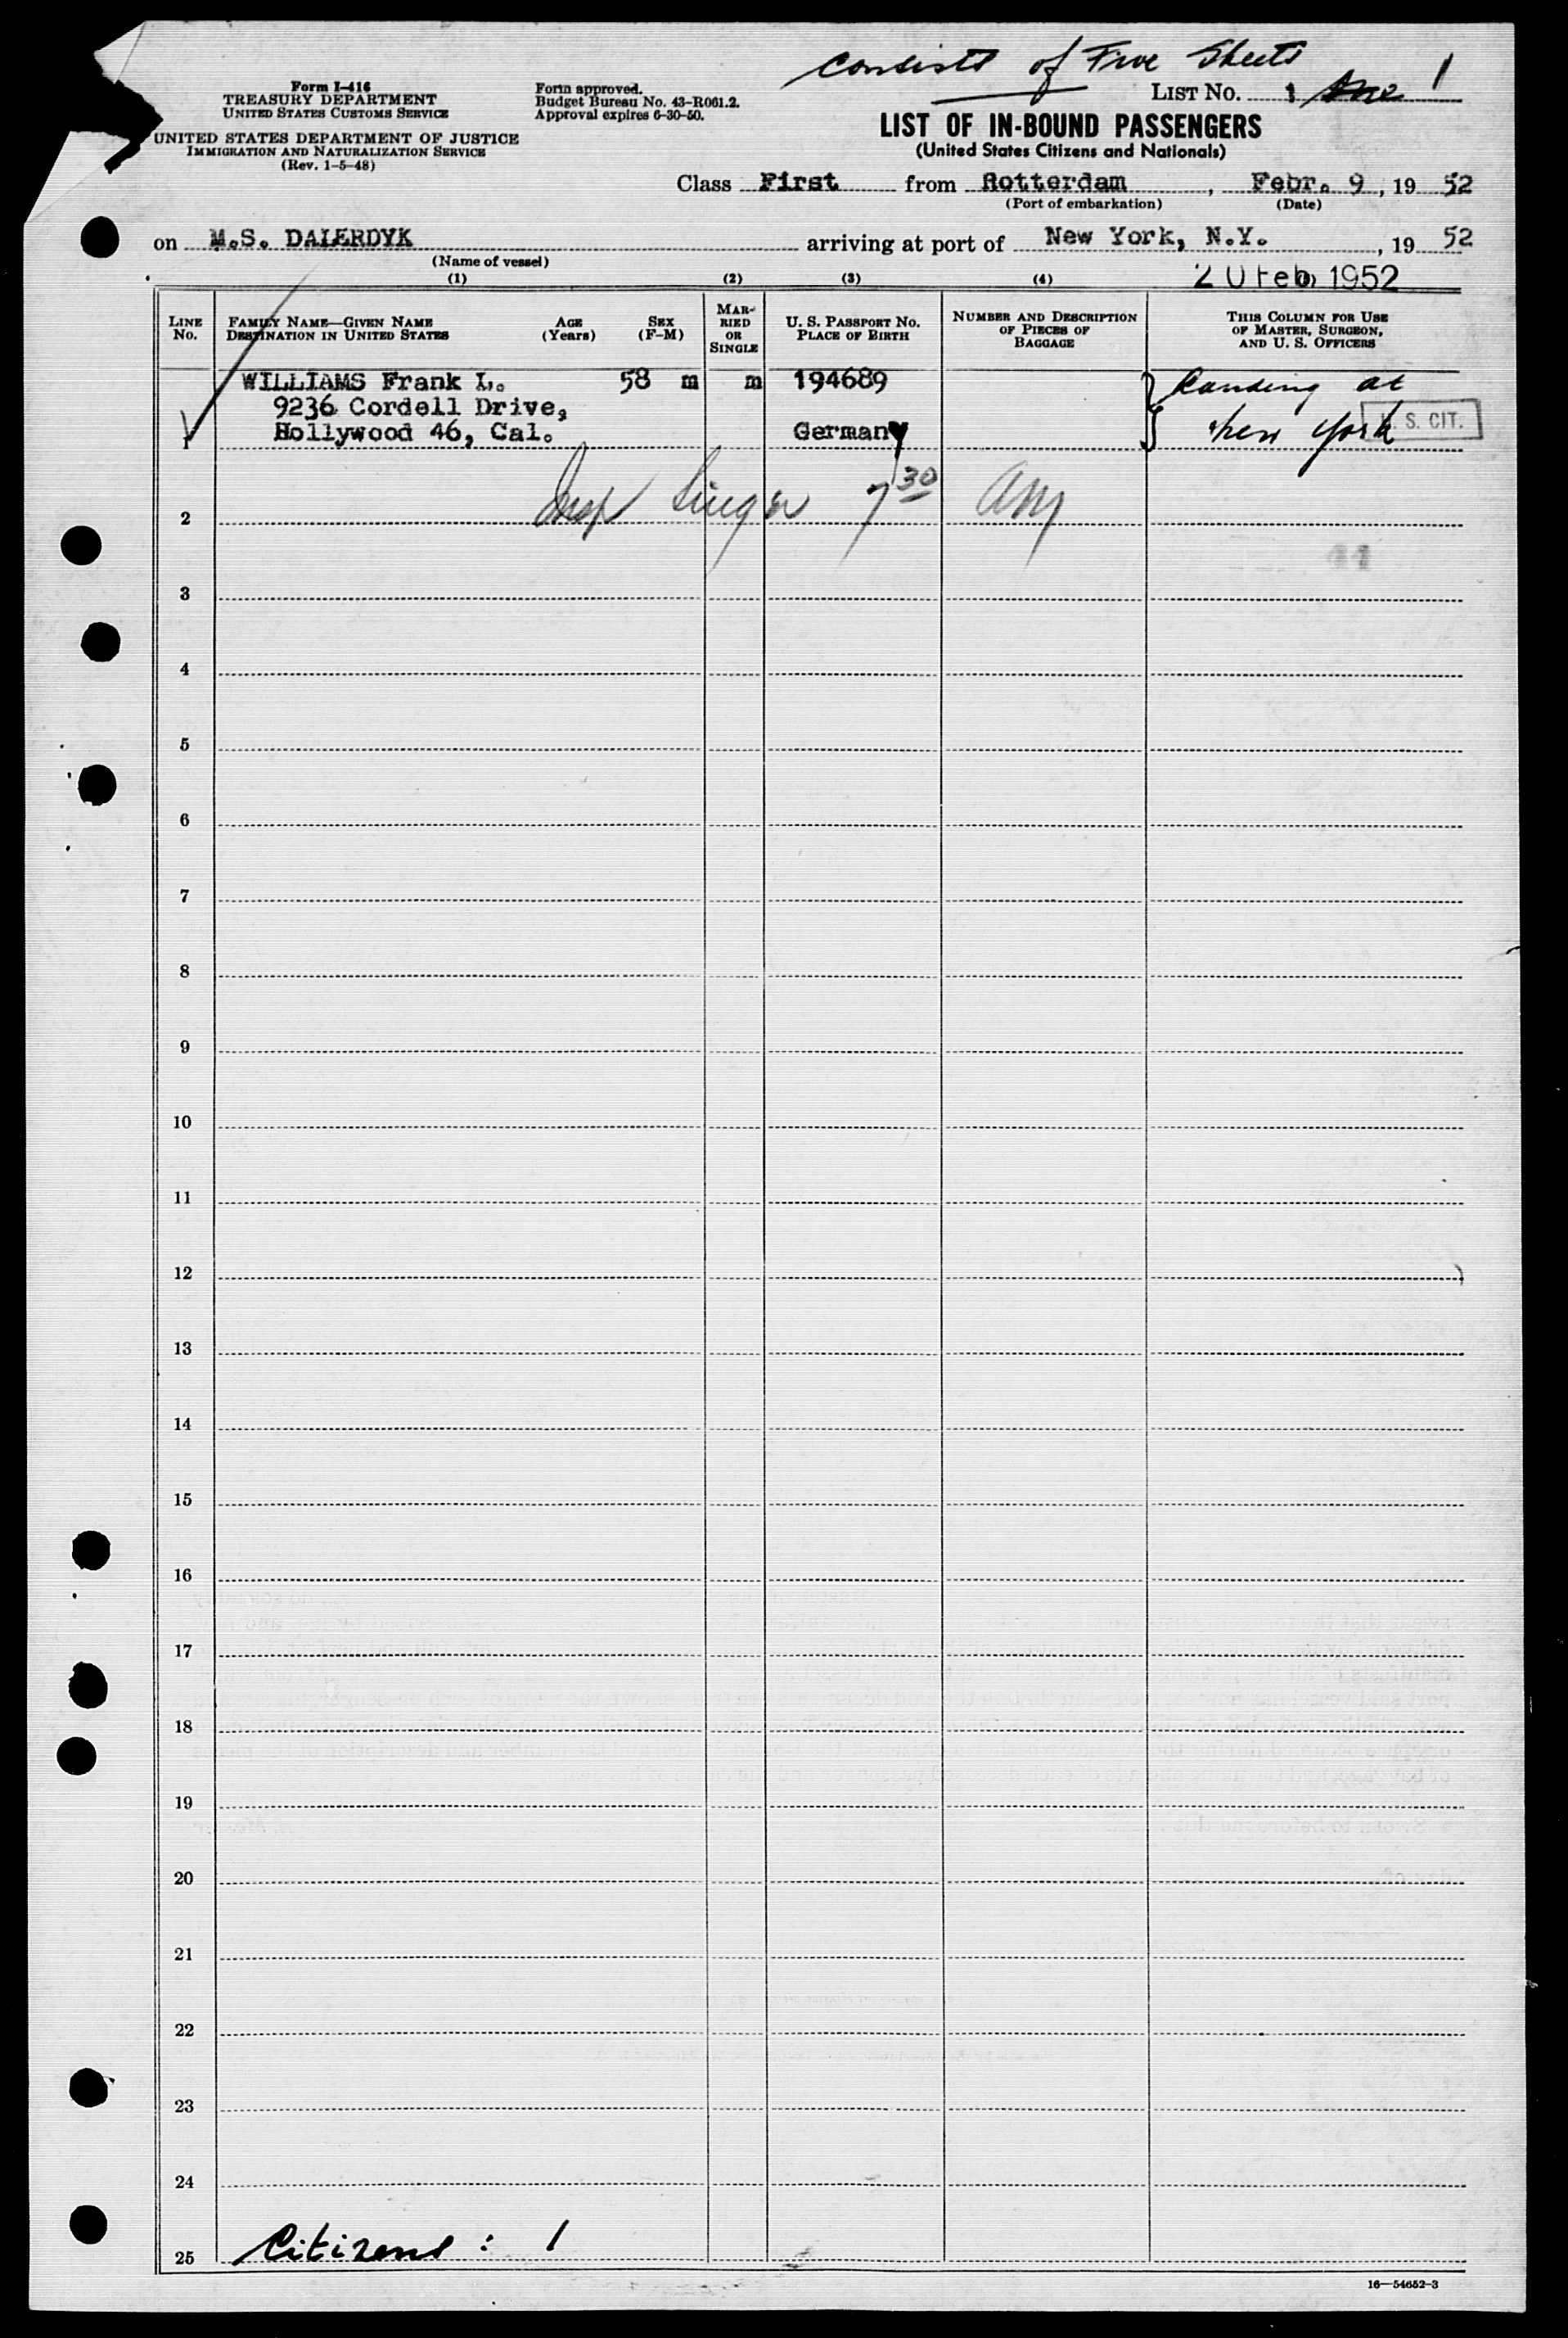 consists of Five Sheets
Form I-416
TREASURY DEPARTMENT
UNITED STATES CUSTOMS SERVICE
UNITED STATES DEPARTMENT OF JUSTICE
IMMIGRATION AND NATURALIZATION SERVICE
(Rev. 1-5-48)
Form approved.
Budget Bureau No. 43-R061.2.
Approval expires 6-30-50.
LIST NO. 1 One 1
LIST OF IN-BOUND PASSENGERS
(United States Citizens and Nationals)
Class First from Rotterdam, Febr. 9, 19 52
(Port of embarkation) (Date)
on M.S. DALERDYK arriving at port of New York, N.Y., 19 52
(Name of vessel)
20 Feb 1952
(1) (2) (3) (4)
LINE No.
FAMILY NAME—GIVEN NAME
DESTINATION IN UNITED STATES
AGE (Years)
SEX (F-M)
MARRIED OR SINGLE
U. S. PASSPORT NO.
PLACE OF BIRTH
NUMBER AND DESCRIPTION OF PIECES OF BAGGAGE
THIS COLUMN FOR USE OF MASTER, SURGEON, AND U. S. OFFICERS
WILLIAMS Frank L. 58 m m 194689 Landing at
9236 Cordell Drive,
1 Hollywood 46, Cal. Germany New York S. CIT.
Insp Singer 7 30 am
2
44
3
4
5
6
7
8
9
10
11
12
13
14
15
16
17
18
19
20
21
22
23
24
25 Citizens : 1
16—54652-3